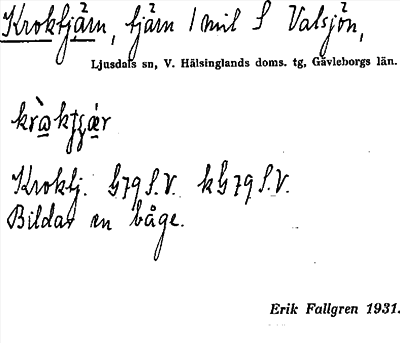 Kroktjärn, tjärn 1 mil S Valsjön,
Ljusdals sn, V. Hälsinglands doms. tg, Gävleborgs län.
Kroktj. G79 S.V. kG79 S.V.
Bildar en båge.
Erik Fallgren 1931.